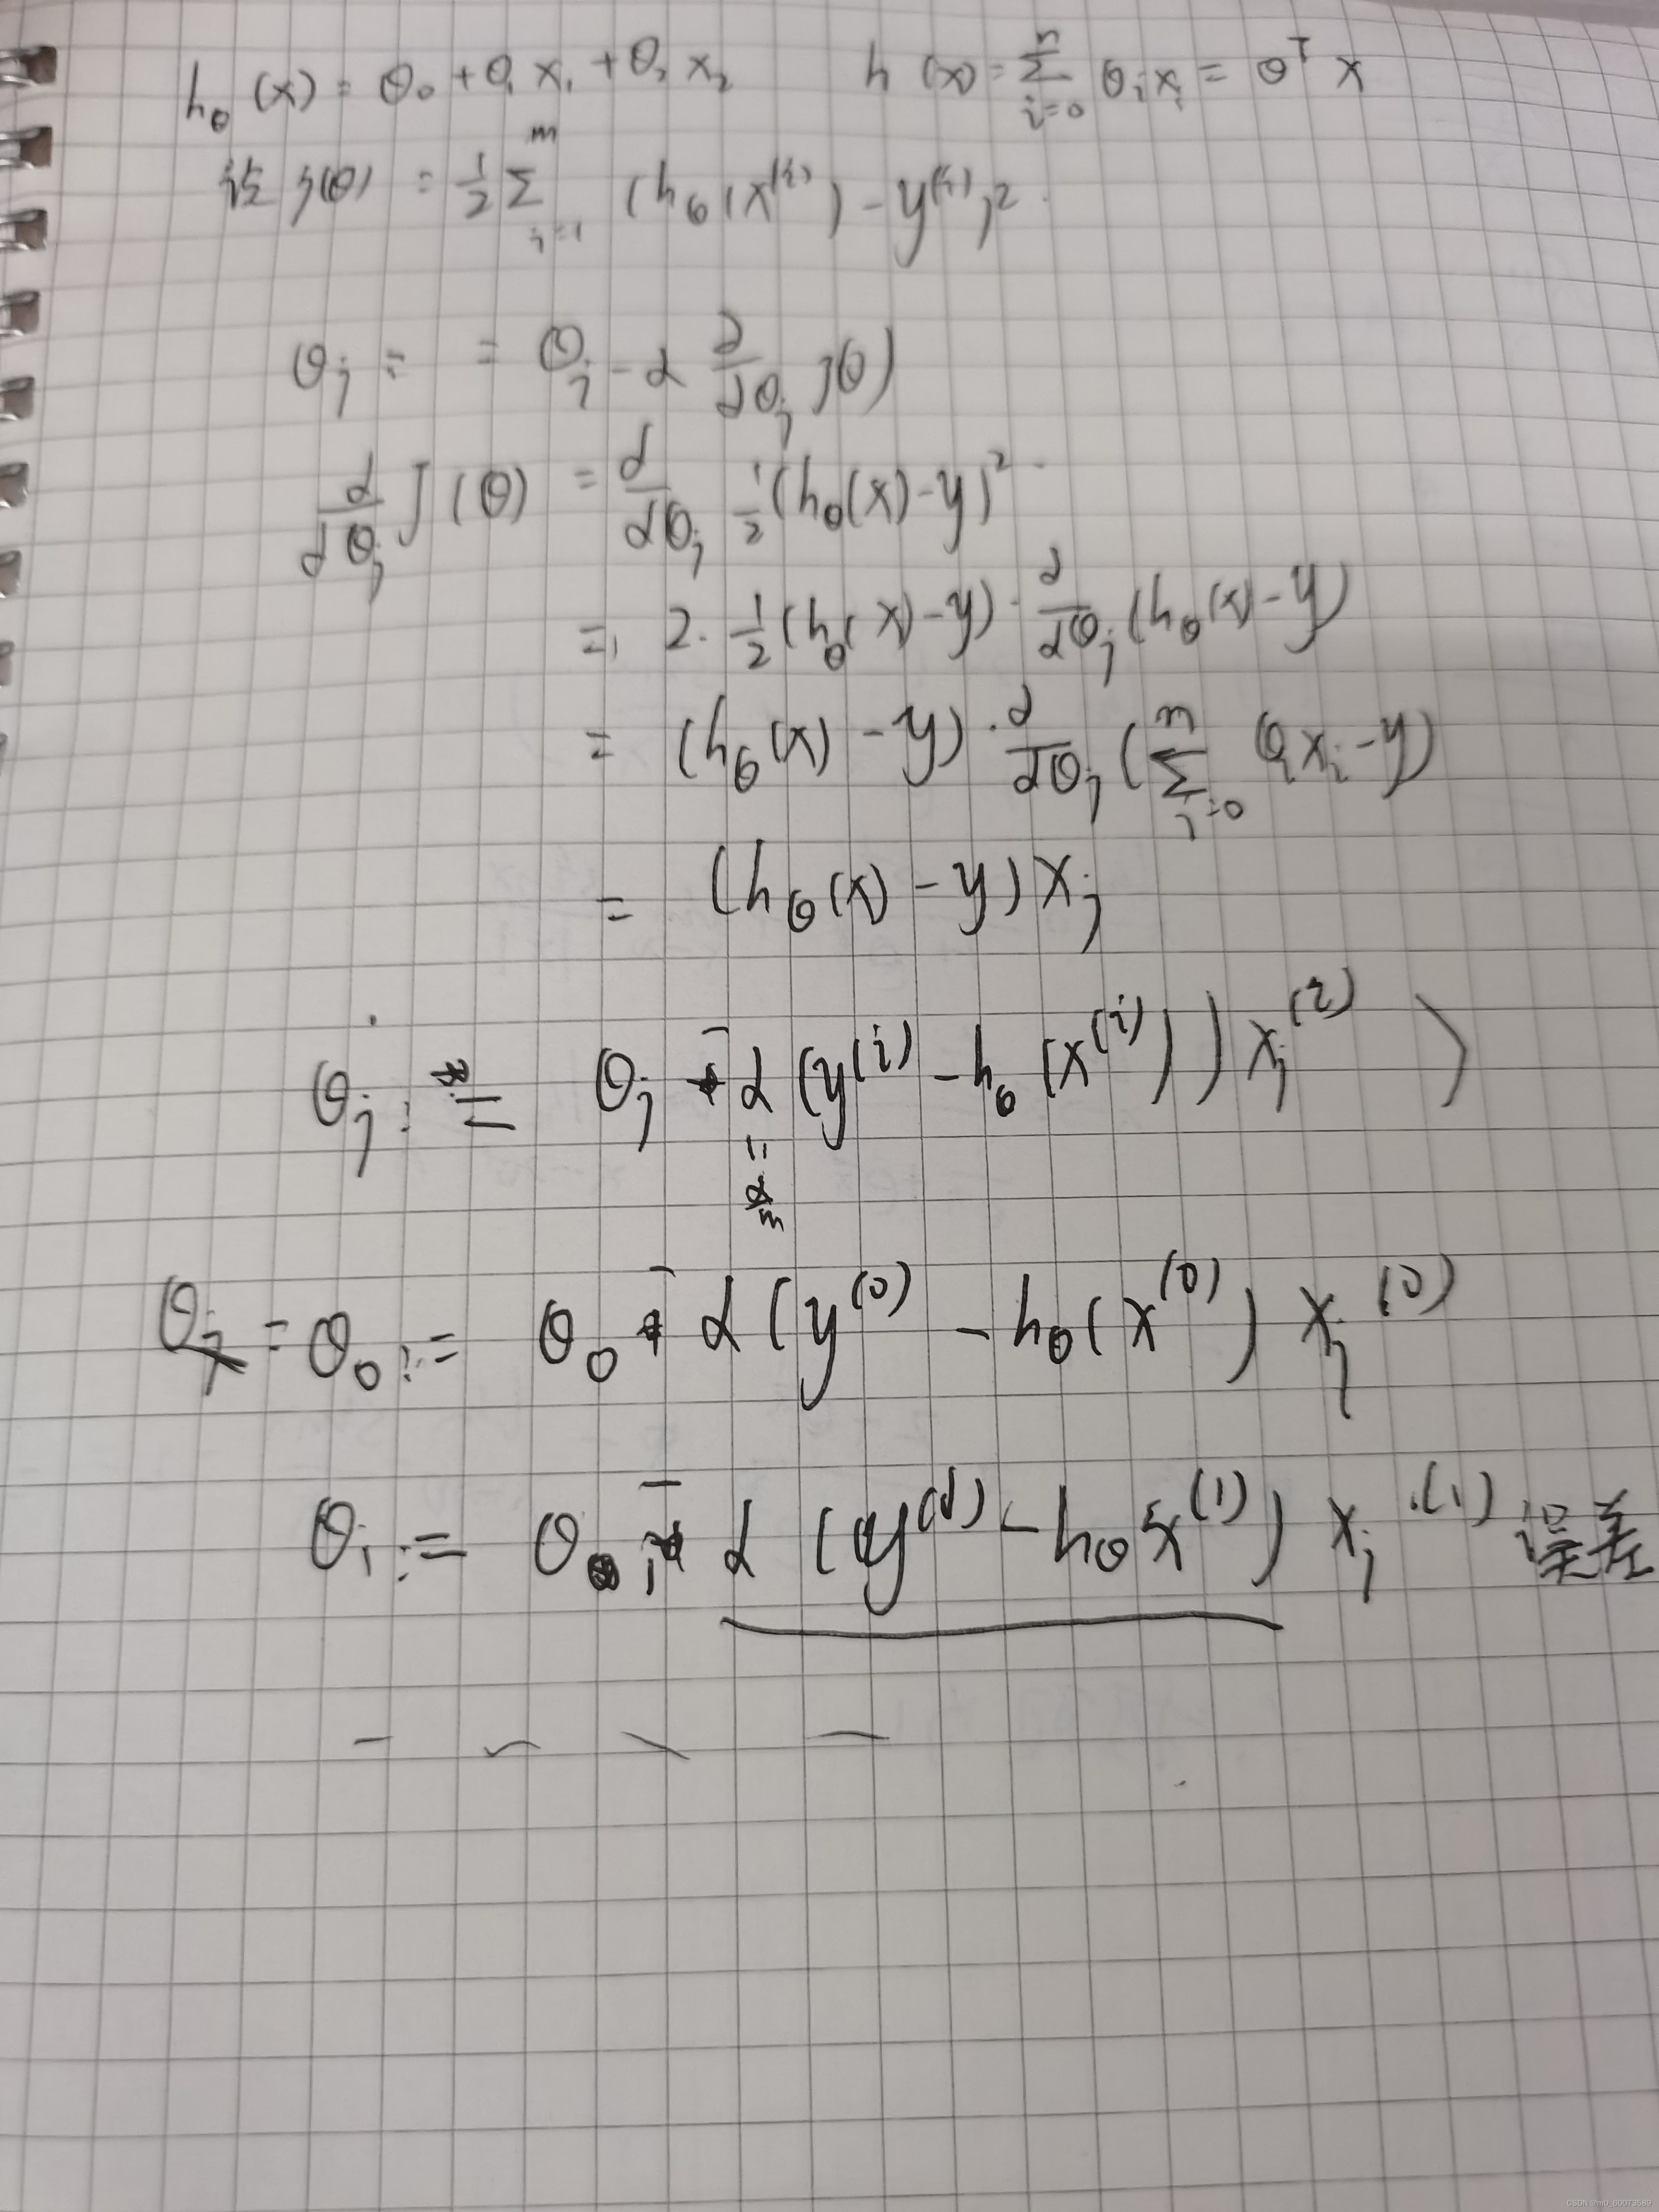 h_θ (x) = θ₀ + θ₁ x₁ + θ₂ x₂ h (x) = ∑_{i=0}^{n} θ_i x_i = θ^T x
设 J(θ) = 1/2 ∑_{i=1}^{m} (h_θ (x^{(i)}) - y^{(i)})²
θ_j := θ_j - α ∂/∂θ_j J(θ)
∂/∂θ_j J(θ) = ∂/∂θ_j 1/2 (h_θ(x) - y)²
= 2 · 1/2 (h_θ(x) - y) · ∂/∂θ_j (h_θ(x) - y)
= (h_θ(x) - y) · ∂/∂θ_j (∑_{i=0}^{n} θ_i x_i - y)
= (h_θ(x) - y) x_j
θ_j := θ_j - α (y^{(i)} - h_θ (x^{(i)})) x_j^{(i)} )
= α/m
θ_j = θ₀ := θ₀ - α (y^{(0)} - h_θ(x^{(0)}) x_j^{(0)}
θ₁ := θ₁ - α (y^{(1)} - h_θ x^{(1)}) x_j^{(1)} 误差
CSDN @m0_60073589